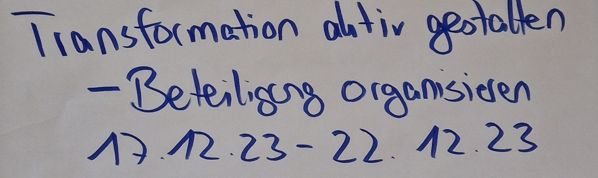 Transformation aktiv gestalten
- Beteiligung organisieren
17.12.23 - 22.12.23